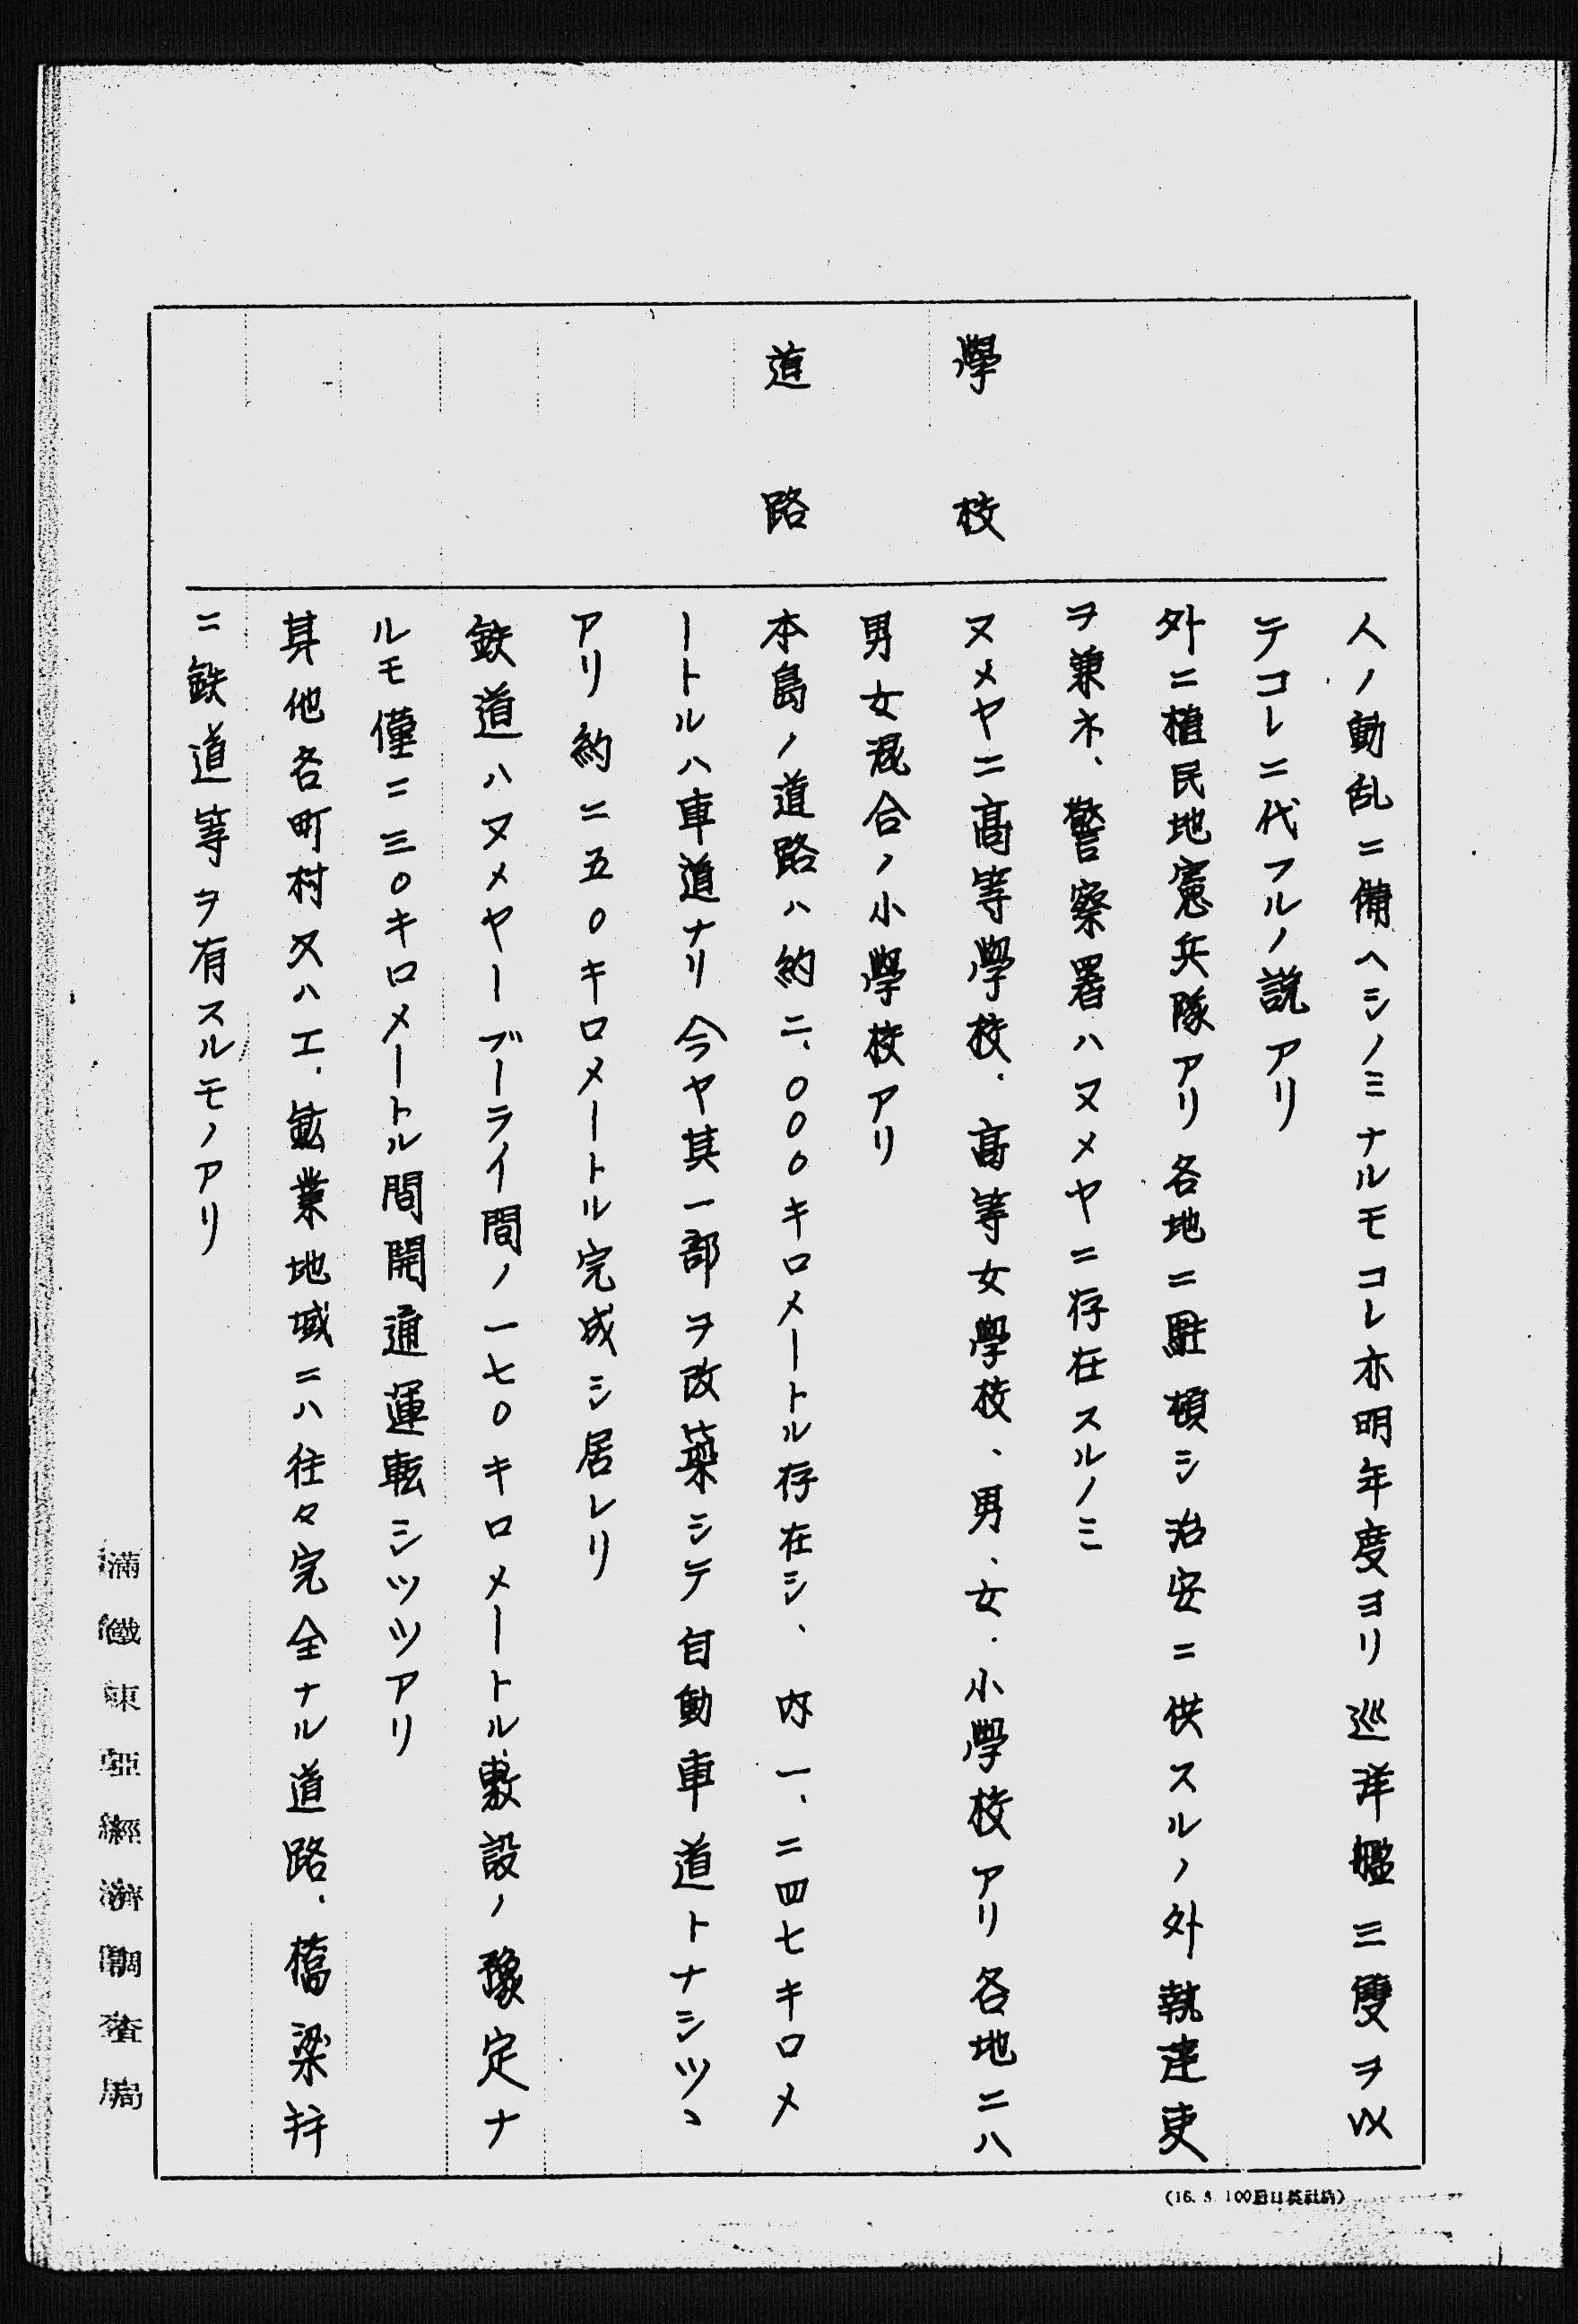 人ノ動乱ニ備ヘシノミナルモコレ亦明年度ヨリ巡洋艦三隻ヲ以
テコレニ代フルノ説アリ
外ニ植民地憲兵隊アリ各地ニ駐頓シ治安ニ供スルノ外執達吏
ヲ兼ネ、警察署ハヌメヤニ存在スルノミ
學校
ヌメヤニ高等學校、高等女學校、男、女、小學校アリ各地ニハ
男女混合ノ小學校アリ
道路
本島ノ道路ハ約二、〇〇〇キロメートル存在シ、内一、二四七キロメ
ートルハ車道ナリ今ヤ其一部ヲ改築シテ自動車道トナシツヽ
アリ約二五〇キロメートル完成シ居レリ
鉄道ハヌメヤーブーライ間ノ一七〇キロメートル敷設ノ豫定ナ
ルモ僅ニ三〇キロメートル間開通運転シツツアリ
其他各町村又ハ工、鉱業地域ニハ往々完全ナル道路、橋梁幷
ニ鉄道等ヲ有スルモノアリ
滿鐵東亞經濟調査局